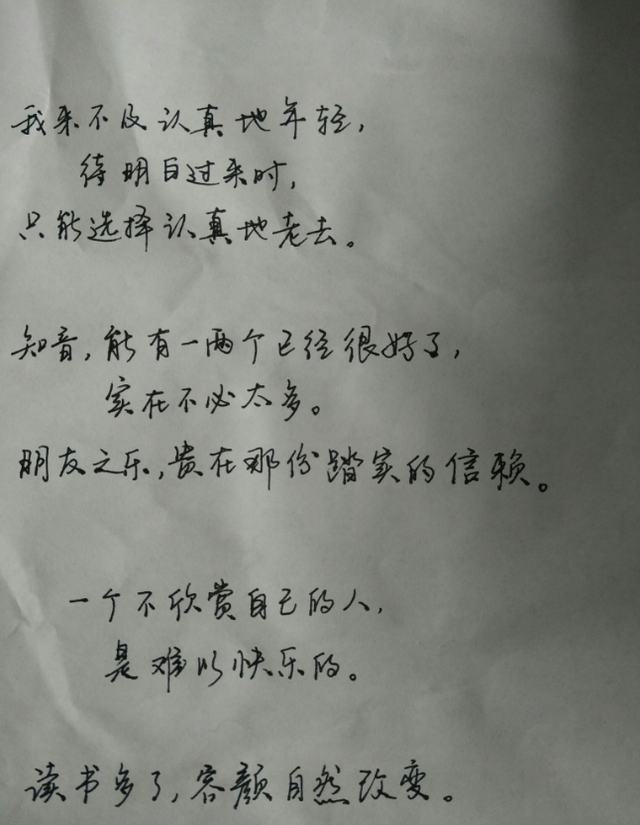 我来不及认真地年轻，
待明白过来时，
只能选择认真地老去。
知音，能有一两个已经很好了，
实在不必太多。
朋友之乐，贵在那份踏实的信赖。
一个不欣赏自己的人，
是难以快乐的。
读书多了，容颜自然改变。